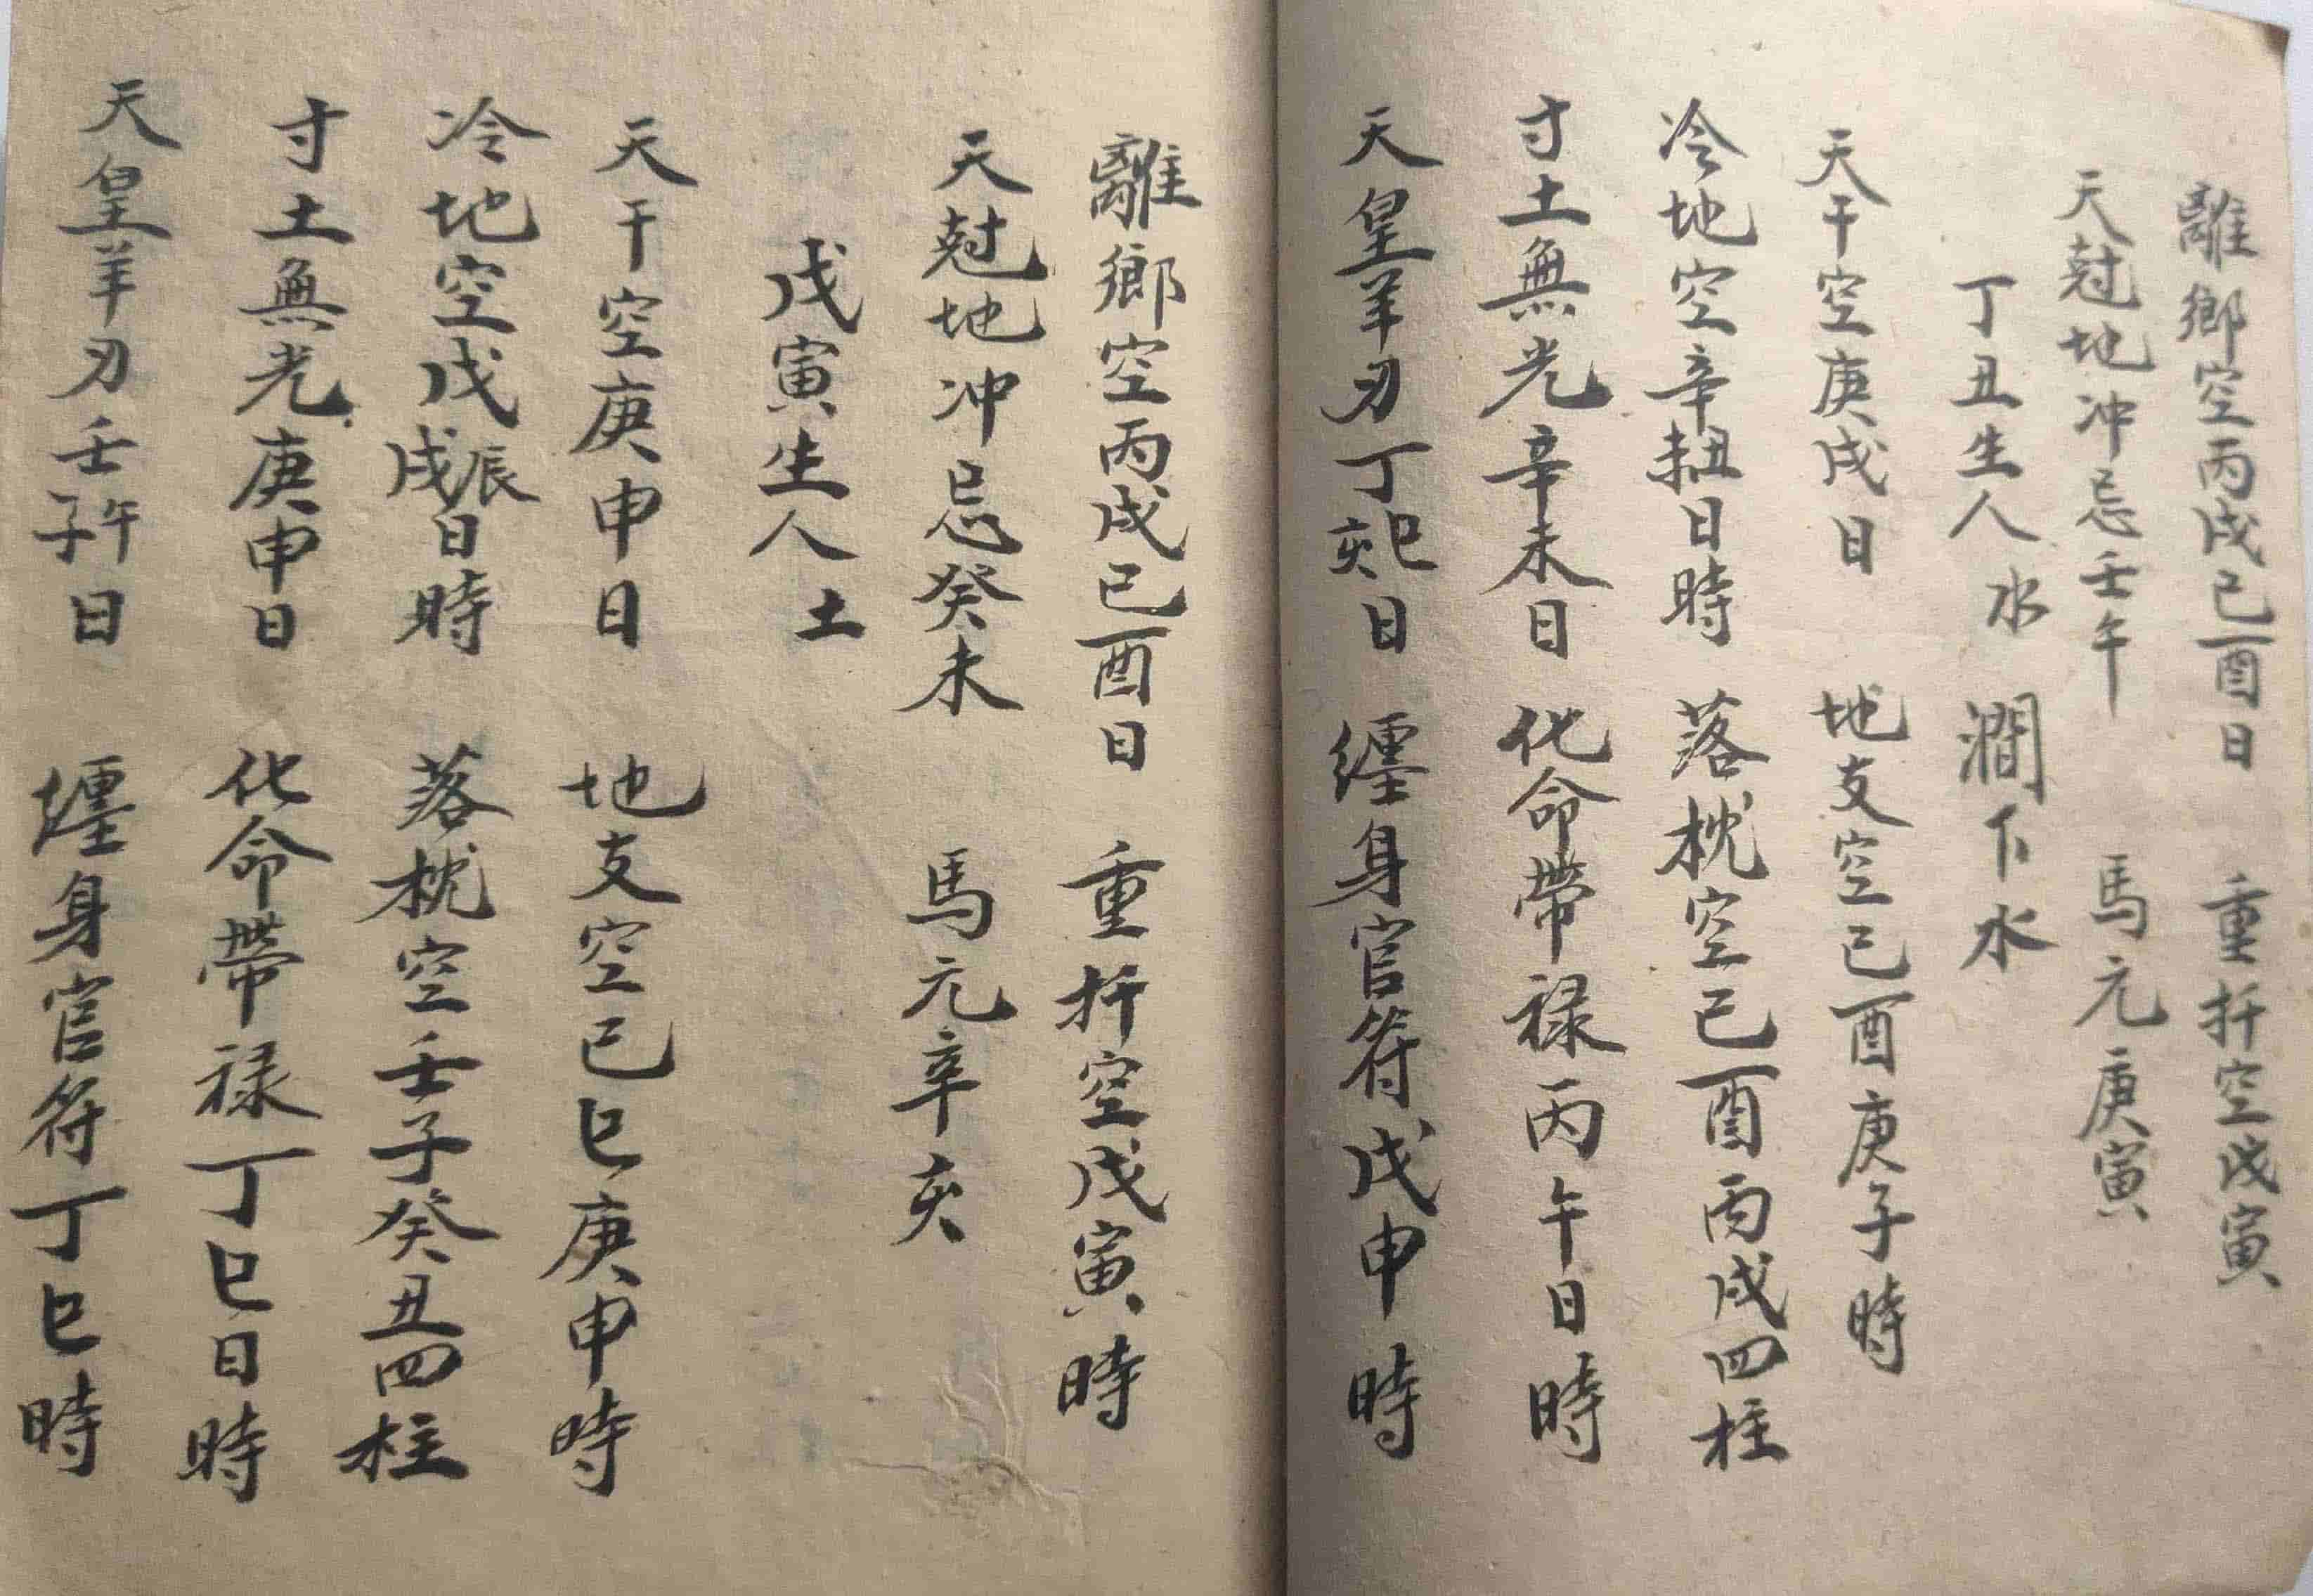 離鄉空丙戌己酉日　重扦空戊寅
天尅地冲忌壬午　馬元庚寅
丁丑生人水　澗下水
天干空庚戌日　地支空己酉庚子時
冷地空辛丑日時　落枕空己酉丙戌四柱
寸土無光辛未日　化命帶禄丙午日時
天皇羊刃丁巳亥日　纏身官符戊申時
離鄉空丙戌己酉日　重扦空戊寅時
天尅地冲忌癸未　馬元辛亥
戊寅生人土
天干空庚申日　地支空己巳庚申時
冷地空戊辰戌日時　落枕空壬子癸丑四柱
寸土無光庚申日　化命帶禄丁巳日時
天皇羊刃壬子午日　纏身官符丁巳時